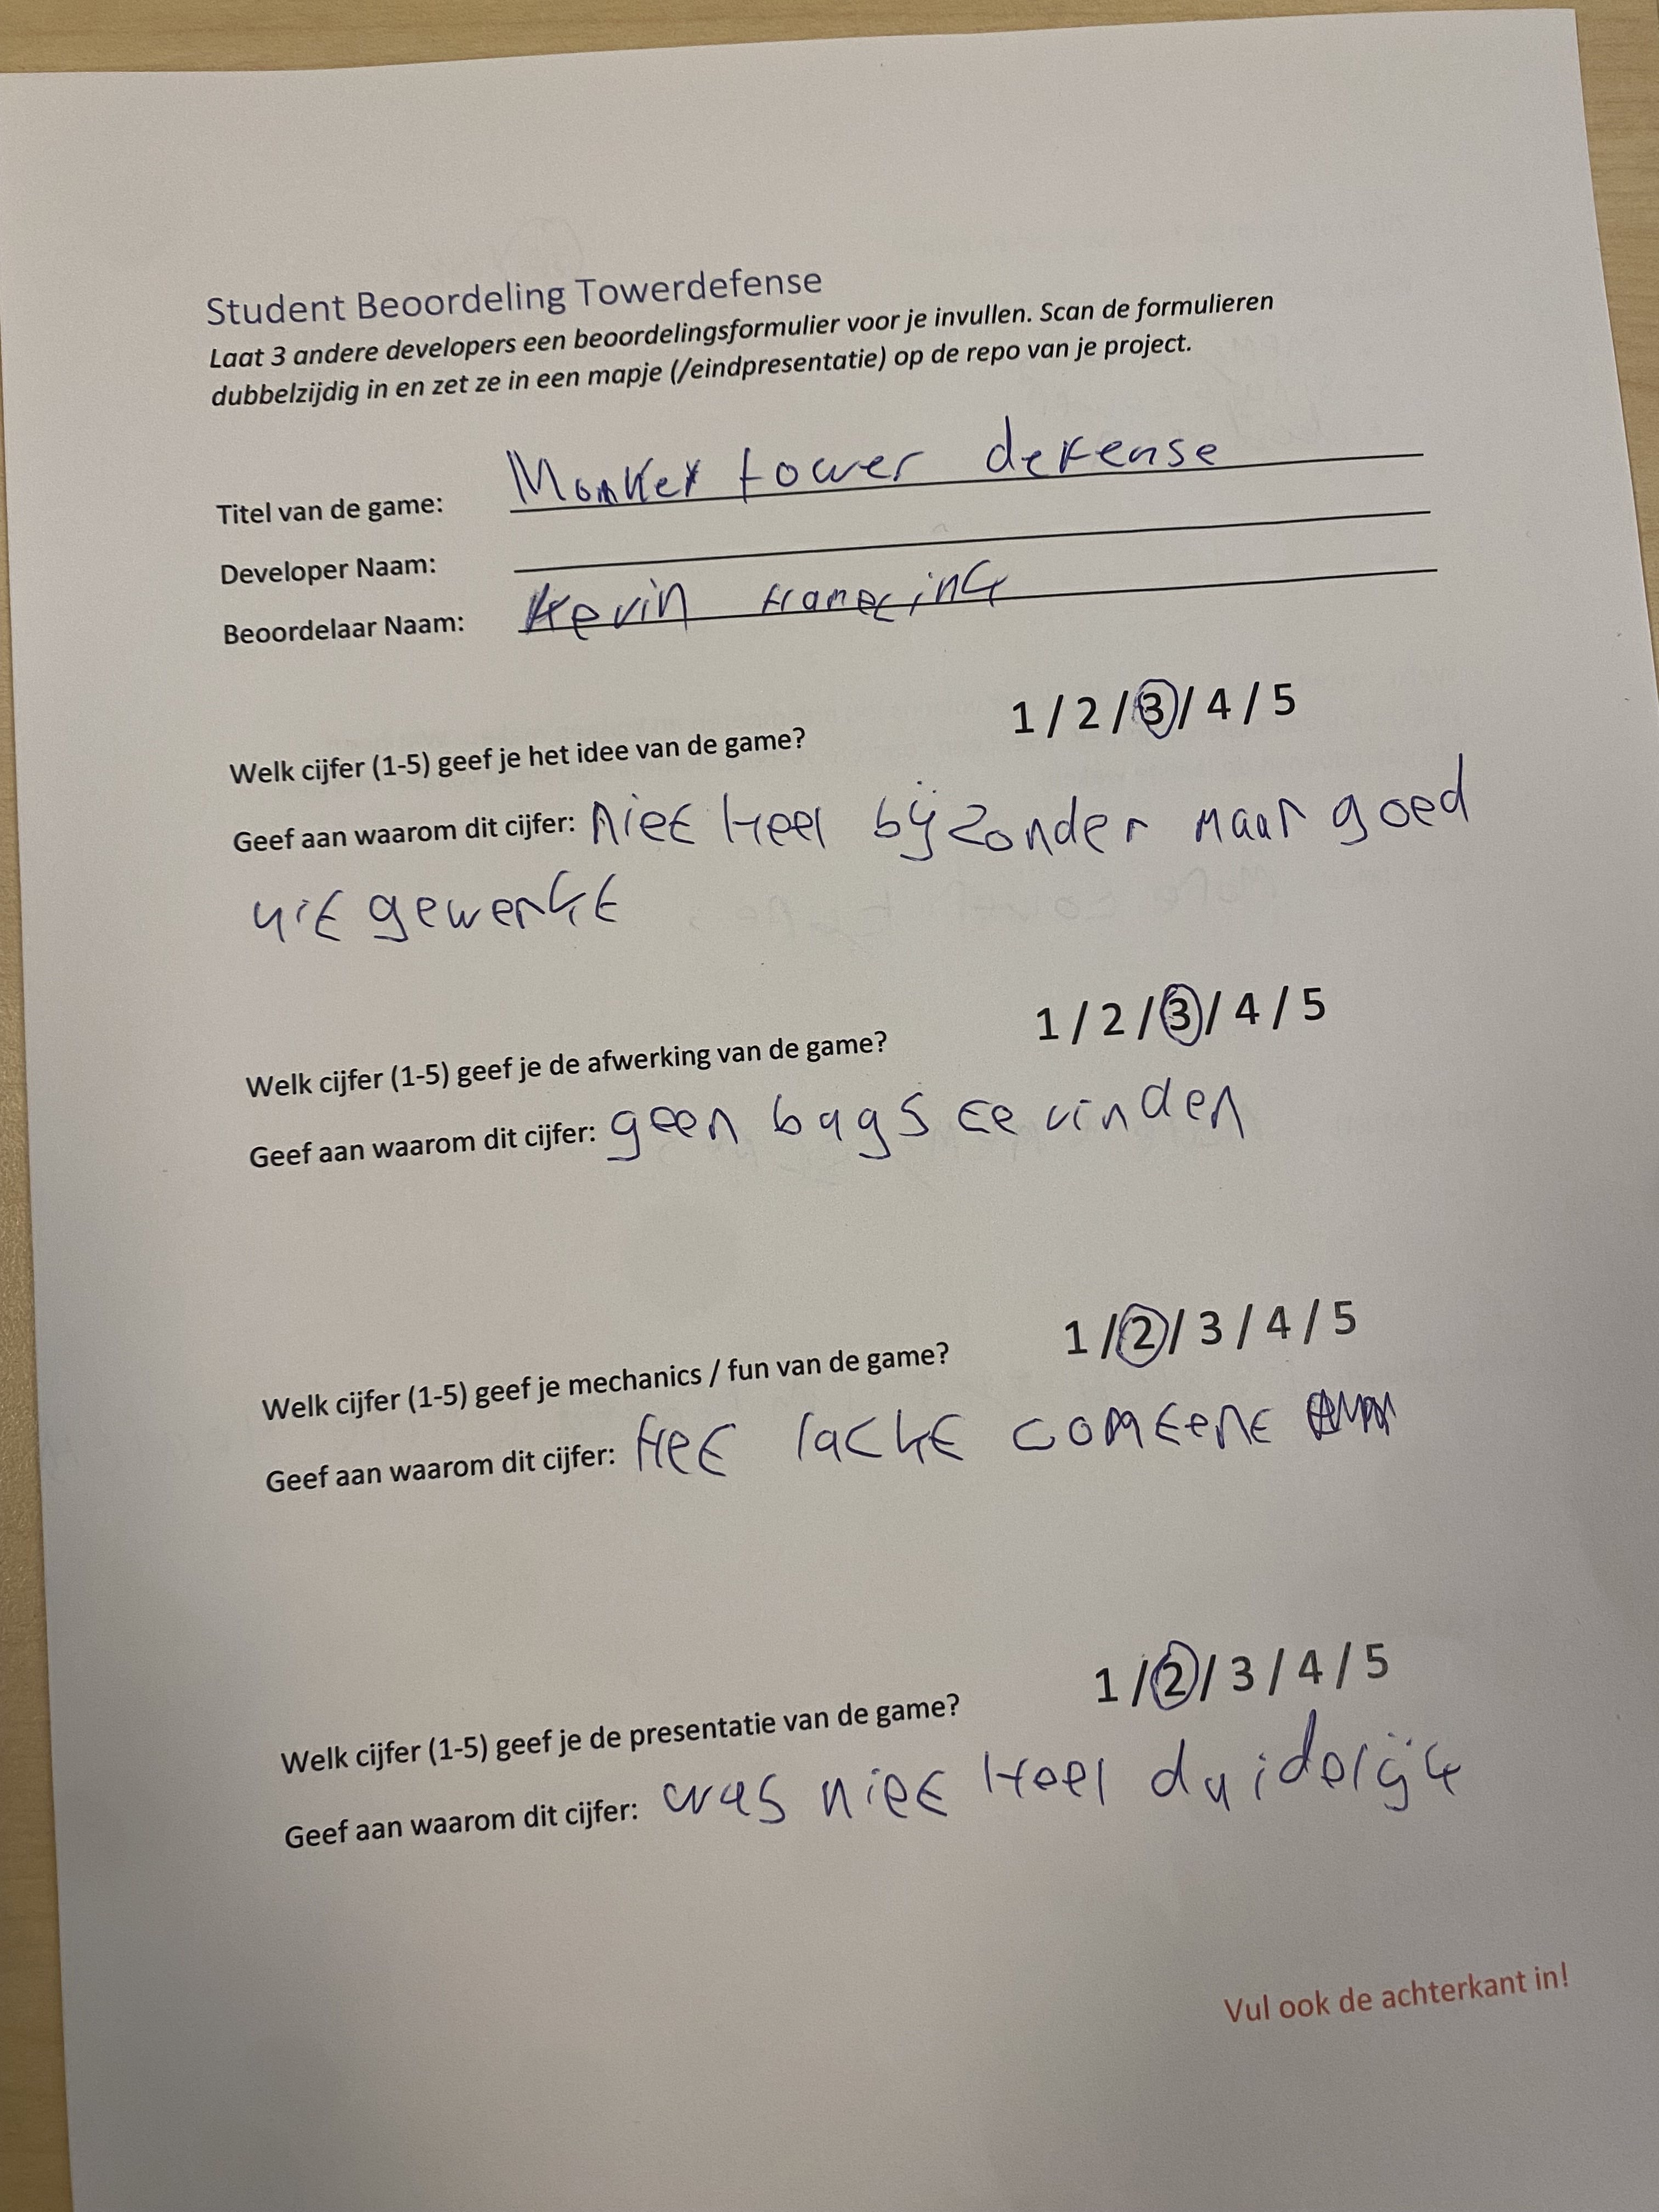 Student Beoordeling Towerdefense
Laat 3 andere developers een beoordelingsformulier voor je invullen. Scan de formulieren
dubbelzijdig in en zet ze in een mapje (/eindpresentatie) op de repo van je project.
Titel van de game: Monkey tower defense
Developer Naam:
Beoordelaar Naam: Kevin
1 / 2 / 3 / 4 / 5
Welk cijfer (1-5) geef je het idee van de game?
Geef aan waarom dit cijfer: niet heel bijzonder maar goed
uit gewerkt
1 / 2 / 3 / 4 / 5
Welk cijfer (1-5) geef je de afwerking van de game?
Geef aan waarom dit cijfer: geen bugs te vinden
1 / 2 / 3 / 4 / 5
Welk cijfer (1-5) geef je mechanics / fun van de game?
Geef aan waarom dit cijfer: Het lackt content
1 / 2 / 3 / 4 / 5
Welk cijfer (1-5) geef je de presentatie van de game?
Geef aan waarom dit cijfer: was niet heel duidelijk
Vul ook de achterkant in!